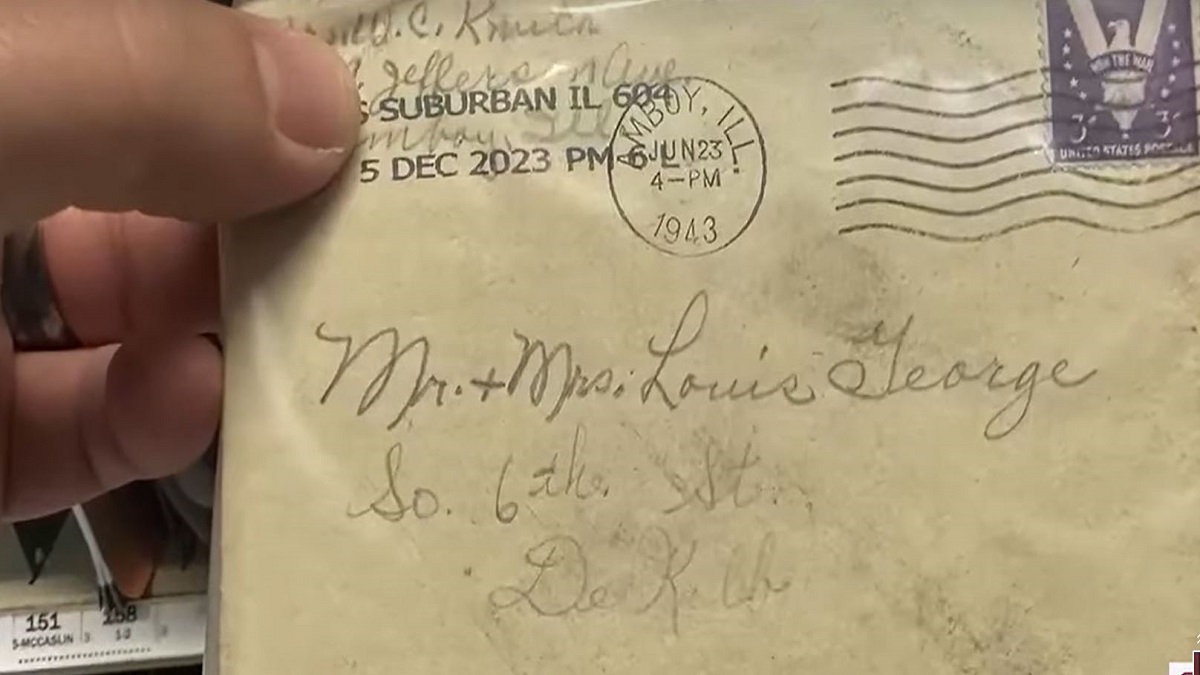 Jefferson Ave.
SUBURBAN IL 604
5 DEC 2023 PM 6 L
AMBOY, ILL.
JUN 23
4-PM
1943
WIN THE WAR
3¢ 3¢
UNITED STATES POSTAGE
Mr. + Mrs. Louis George
So. 6th. St.
De Kalb
151
S-MCCASLIN 3
158